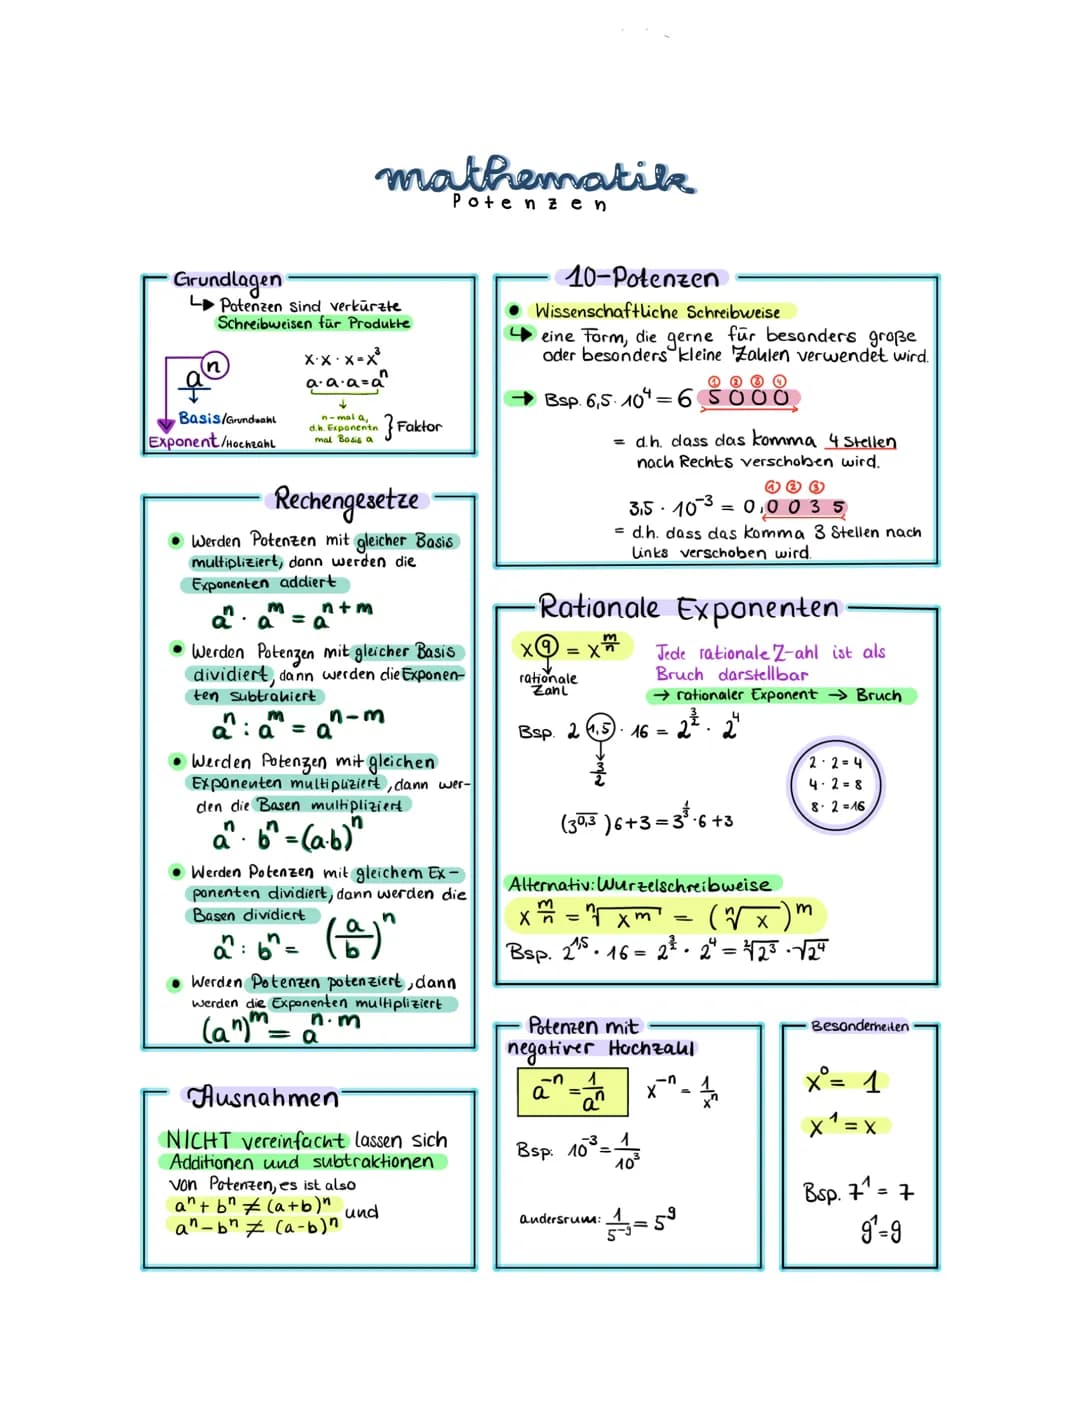 mathematik
Potenzen
Grundlagen
↳ Potenzen sind verkürzte
Schreibweisen für Produkte
aⁿ
Basis/Grundzahl
Exponent/Hochzahl
x·x·x=x³
a·a·a=aⁿ
n-mal a,
d.h. Exponent n
mal Basis a
} Faktor
Rechengesetze
• Werden Potenzen mit gleicher Basis
multipliziert, dann werden die
Exponenten addiert
aⁿ · aᵐ = aⁿ⁺ᵐ
• Werden Potenzen mit gleicher Basis
dividiert, dann werden die Exponen-
ten subtrahiert
aⁿ : aᵐ = aⁿ⁻ᵐ
• Werden Potenzen mit gleichen
Exponenten multipliziert, dann wer-
den die Basen multipliziert
aⁿ · bⁿ = (a·b)ⁿ
• Werden Potenzen mit gleichem Ex-
ponenten dividiert, dann werden die
Basen dividiert
aⁿ : bⁿ = (a/b)ⁿ
• Werden Potenzen potenziert, dann
werden die Exponenten multipliziert
(aⁿ)ᵐ = aⁿ·ᵐ
Ausnahmen
NICHT vereinfacht lassen sich
Additionen und subtraktionen
von Potenzen, es ist also
aⁿ + bⁿ ≠ (a+b)ⁿ und
aⁿ - bⁿ ≠ (a-b)ⁿ
10-Potenzen
• Wissenschaftliche Schreibweise
↳ eine Form, die gerne für besonders große
oder besonders kleine Zahlen verwendet wird.
① ② ③ ④
→ Bsp. 6,5·10⁴ = 6 5000
= d.h. dass das Komma 4 Stellen
nach Rechts verschoben wird.
① ② ③
3,5 · 10⁻³ = 0,0035
= d.h. dass das Komma 3 Stellen nach
Links verschoben wird.
Rationale Exponenten
x^q = x^(m/n)
rationale
Zahl
Jede rationale Z-ahl ist als
Bruch darstellbar
→ rationaler Exponent → Bruch
Bsp. 2^(1,5) · 16 = 2^(3/2) · 2⁴
3/2
2·2=4
4·2=8
8·2=16
(3^0,3̅)6+3 = 3^(1/3)·6+3
Alternativ: Wurzelschreibweise
x^(m/n) = ⁿ√xᵐ = (ⁿ√x)ᵐ
Bsp. 2^1,5 · 16 = 2^(3/2) · 2⁴ = ²√2³ · √2⁴
Potenzen mit
negativer Hochzahl
a⁻ⁿ = 1/aⁿ x⁻ⁿ = 1/xⁿ
Bsp: 10⁻³ = 1/10³
andersrum: 1/5⁻⁹ = 5⁹
Besonderheiten
x⁰ = 1
x¹ = x
Bsp. 7¹ = 7
9¹=9